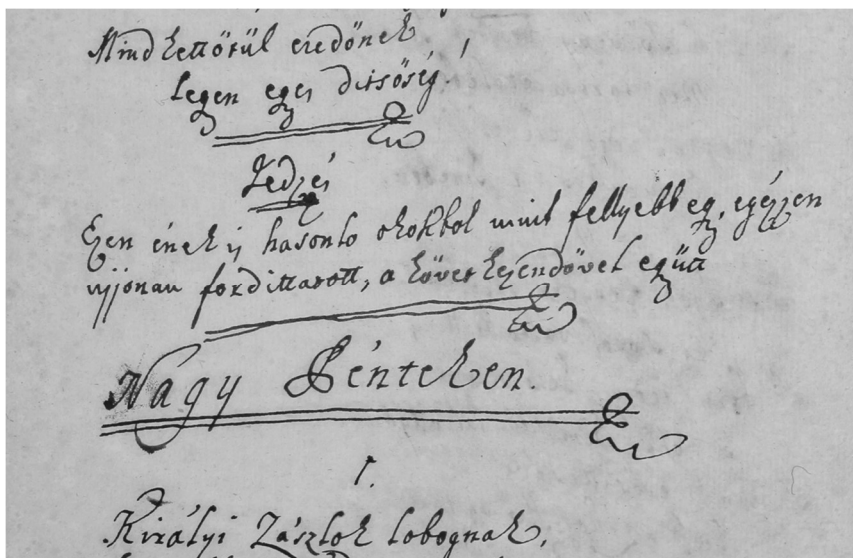 Mind kettőtül eredőnek,
Legen egei ditsőség!
Jedzés
Ezen ének is hasonlo okokbol mint fellyebb eg, egészen
ujjonan fordittatott, a következendővel együtt
Nagy Pénteken.
1.
Királyi Zászlok lobognak,